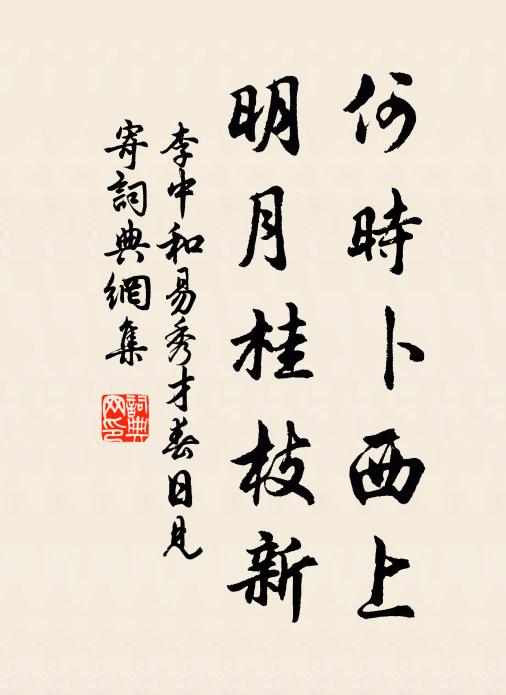 何時卜西上
明月桂枝新
李中和易秀才春日見
寄詞典網集
詞典
网印